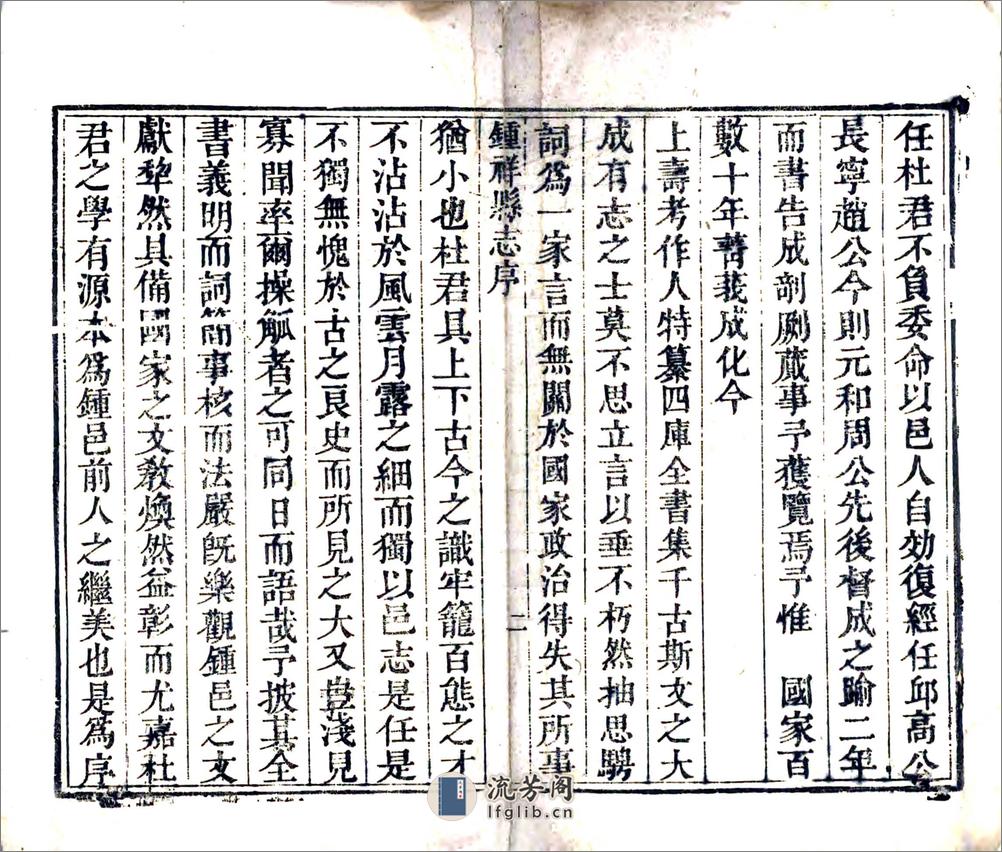 任杜君不負委命以邑人自効復經任邱高公
長寧趙公今則元和周公先後督成之踰二年
而書告成剞劂蕆事予獲覽焉予惟　國家百
數十年菁莪成化今
上壽考作人特纂四庫全書集千古斯文之大
成有志之士莫不思立言以垂不朽然抽思騁
詞爲一家言而無關於國家政治得失其所事
鍾祥縣志序
二
猶小也杜君具上下古今之識牢籠百態之才
不沾沾於風雲月露之細而獨以邑志是任是
不獨無愧於古之良史而所見之大又豈淺見
寡聞率爾操觚者之可同日而語哉予披其全
書義明而詞簡事核而法嚴旣樂觀鍾邑之文
獻犂然具備國家之文敎煥然益彰而尤嘉杜
君之學有源本爲鍾邑前人之繼美也是爲序
流芳阁
lfglib.cn